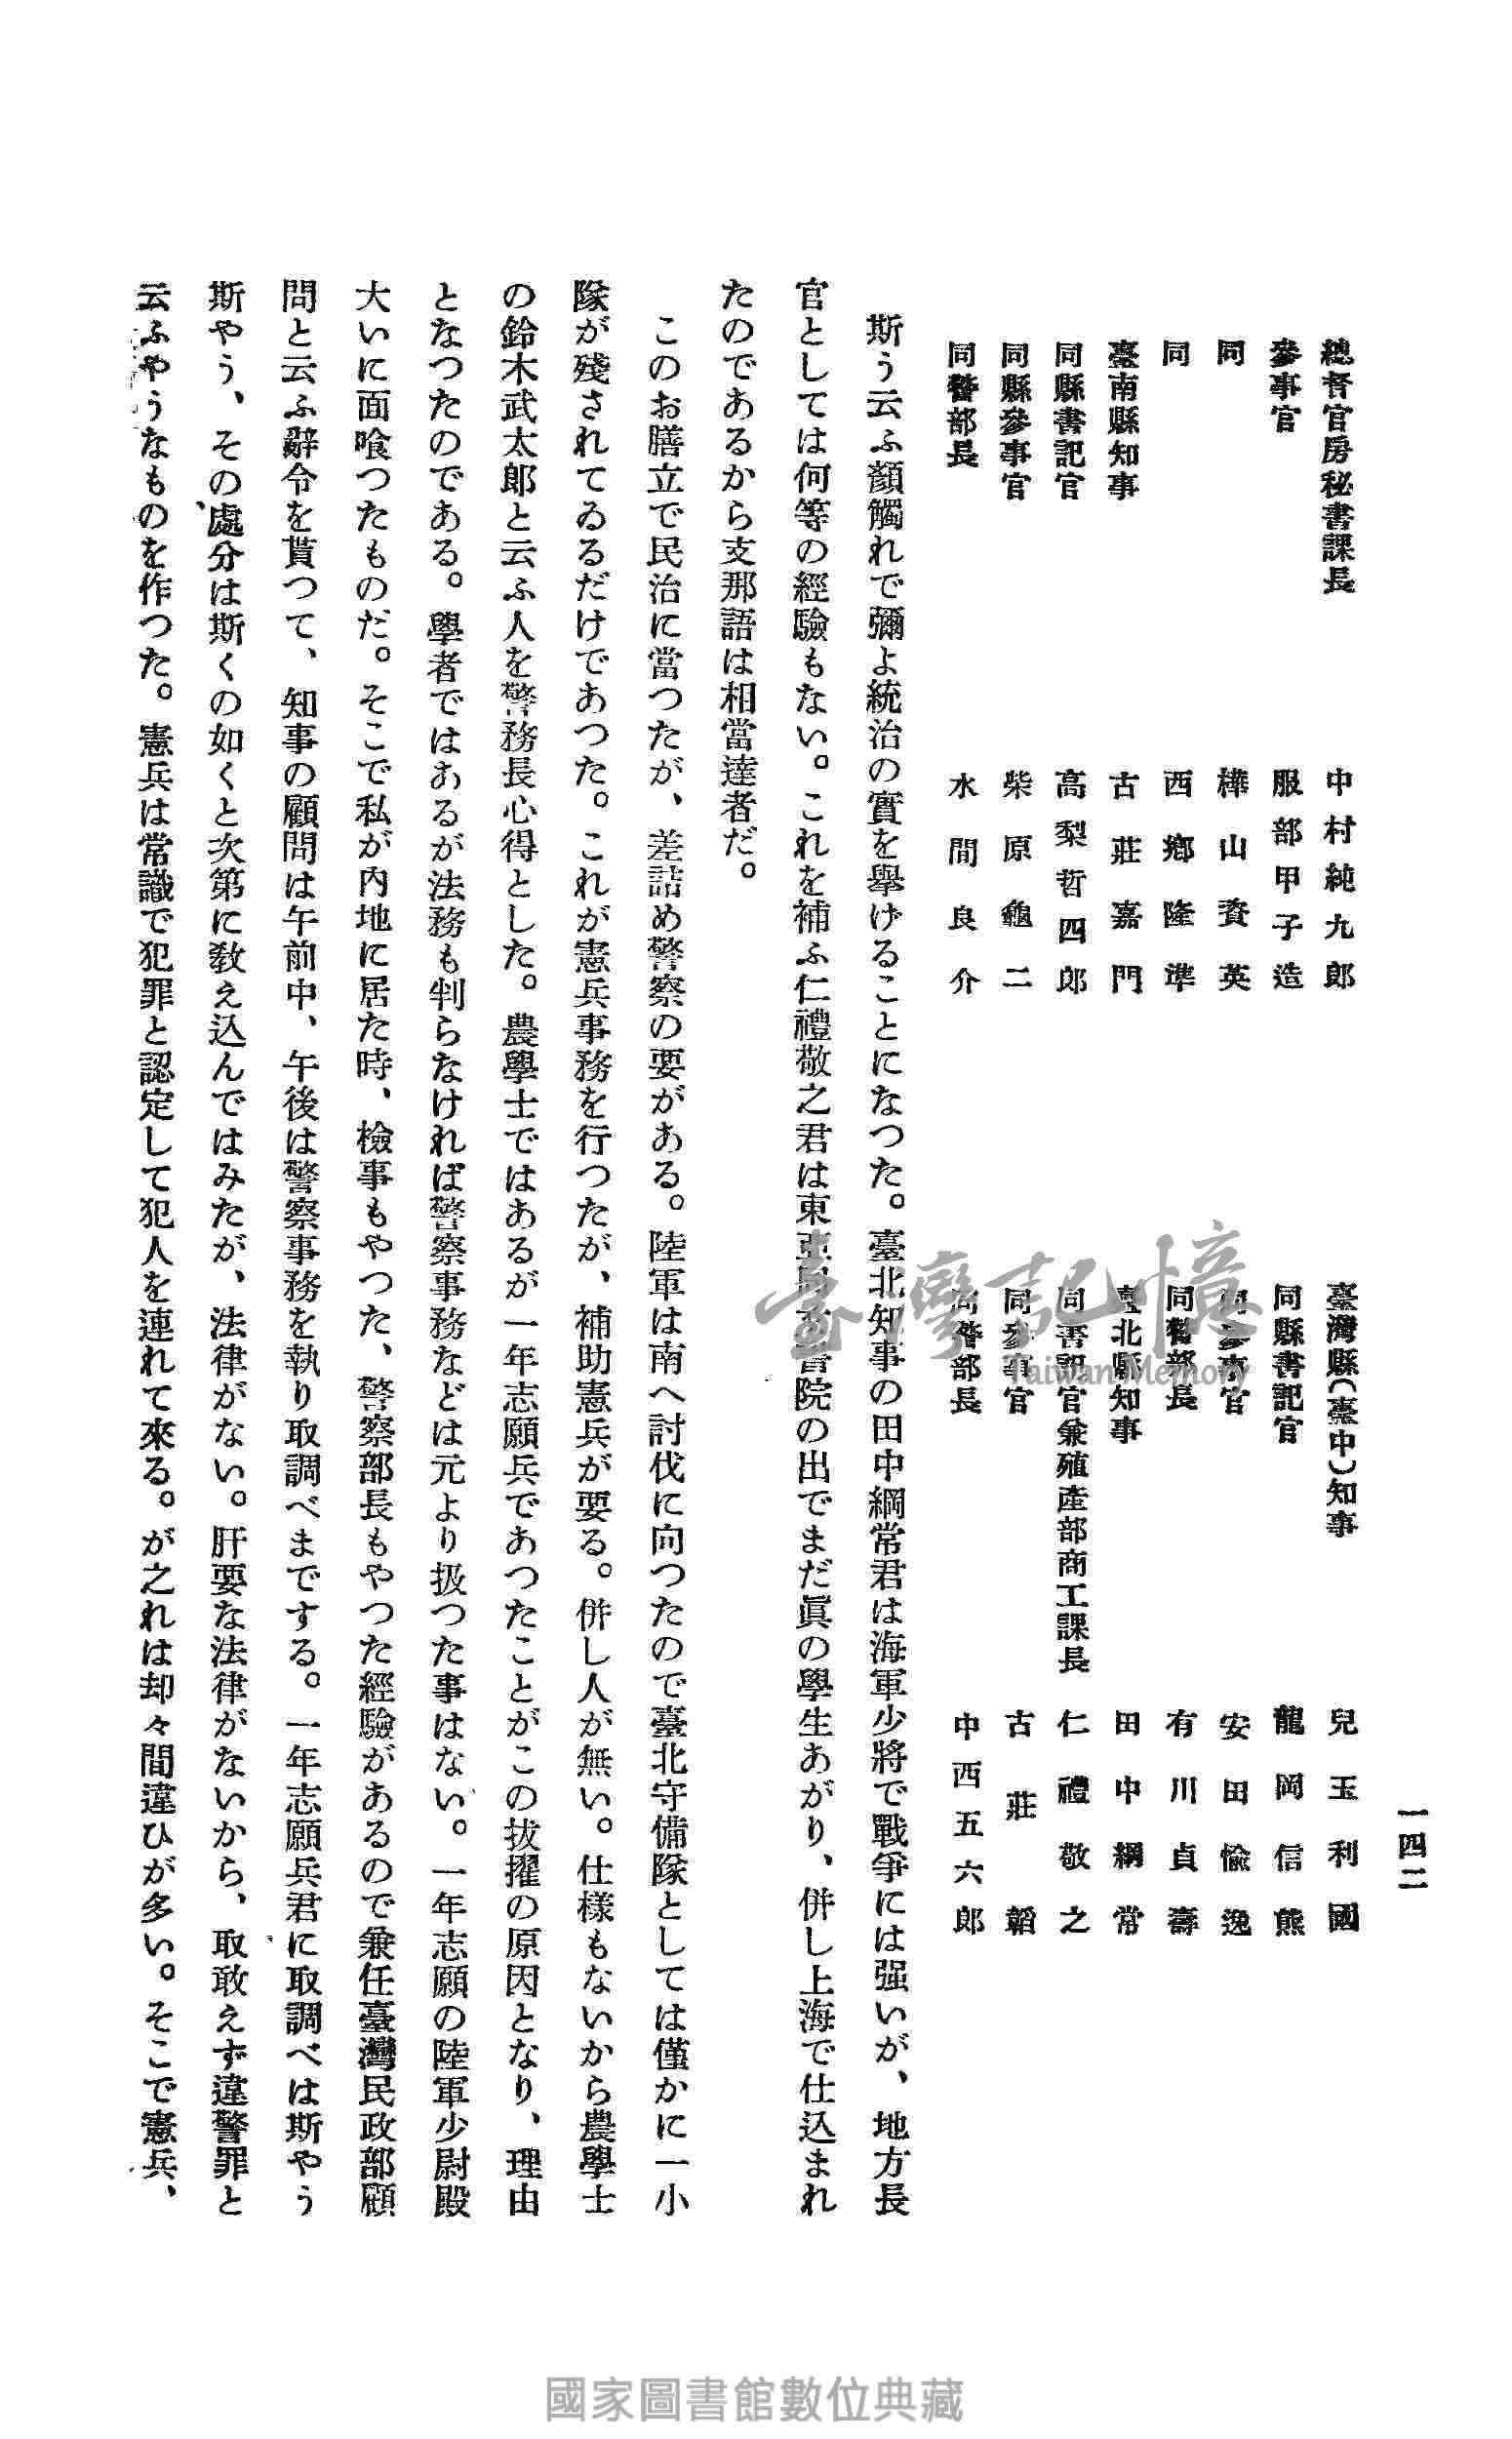 一四二
總督官房秘書課長 中村純九郎
參事官 服部甲子造
同 樺山資英
同 西鄉隆準
臺南縣知事 古莊嘉門
同縣書記官 高梨哲四郎
同縣參事官 柴原龜二
同警部長 水間良介
臺灣縣(臺中)知事 兒玉利國
同縣書記官 龍岡信熊
同參事官 安田愉逸
同警部長 有川貞壽
臺北縣知事 田中綱常
同書記官兼殖產部商工課長 仁禮敬之
同參事官 古莊韜
同警部長 中西五六郎
斯う云ふ顏觸れで彌よ統治の實を擧げることになつた。臺北知事の田中綱常君は海軍少將で戰爭には强いが、地方長
官としては何等の經驗もない。これを補ふ仁禮敬之君は東亞同文書院の出でまだ眞の學生あがり、併し上海で仕込まれ
たのであるから支那語は相當達者だ。
このお膳立で民治に當つたが、差詰め警察の要がある。陸軍は南へ討伐に向つたので臺北守備隊としては僅かに一小
隊が殘されてゐるだけであつた。これが憲兵事務を行つたが、補助憲兵が要る。併し人が無い。仕樣もないから農學士
の鈴木武太郎と云ふ人を警務長心得とした。農學士ではあるが一年志願兵であつたことがこの拔擢の原因となり、理由
となつたのである。學者ではあるが法務も判らなければ警察事務などは元より扱つた事はない。一年志願の陸軍少尉殿
大いに面喰つたものだ。そこで私が內地に居た時、檢事もやつた、警察部長もやつた經驗があるので兼任臺灣民政部顧
問と云ふ辭令を貰つて、知事の顧問は午前中、午後は警察事務を執り取調べまでする。一年志願兵君に取調べは斯やう
斯やう、その處分は斯くの如くと次第に敎え込んではみたが、法律がない。肝要な法律がないから、取敢えず違警罪と
云ふやうなものを作つた。憲兵は常識で犯罪と認定して犯人を連れて來る。が之れは却々間違ひが多い。そこで憲兵、
臺灣記憶
Taiwan Memory
國家圖書館數位典藏